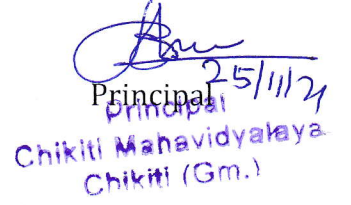 25/11/21
Principal
Principal
Chikiti Mahavidyalaya
Chikiti (Gm.)